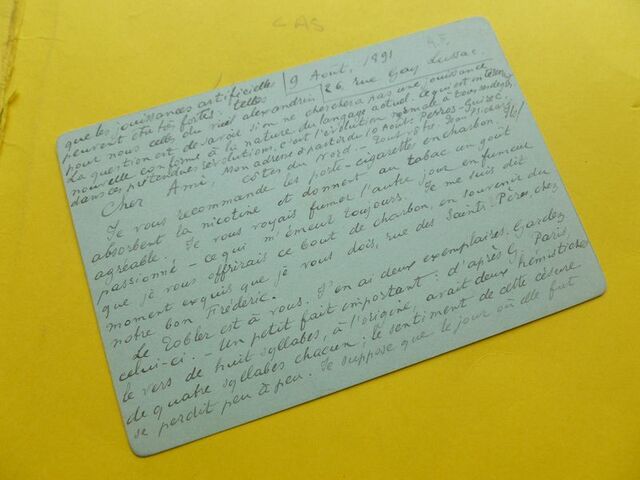 CAS
que les jouissances artificielles | 9 Août, 1891
peuvent être fortes : telles | 26, rue Gay Lussac.
pour nous celle du vers alexandrin
La question est de savoir si on ne cherchera pas une jouissance
nouvelle conforme à la nature du langage actuel. ce qui est intéress
dans ces prétendues révolutions, c'est l'évolution normale à tous ses degrés,
Cher Ami, Mon adresse à partir du 10 Août : Perros-Guirec.
Côtes du Nord
Je vous recommande les porte-cigarettes en charbon. Ils
absorbent la nicotine et donnent au tabac un goût
agréable. Je vous voyais fumer l'autre jour en fumeur
passionné – ce qui m'émeut toujours. Je me suis dit
que je vous offrirais ce bout de charbon, en souvenir du
moment exquis que je vous dois, rue des Saints Pères, chez
notre bon Frédéric.
Le Tobler est à vous. J'en ai deux exemplaires. Gardez
celui-ci. – Un petit fait important : d'après G. Paris,
le vers de huit syllabes, à l'origine, avait deux hémistiches
de quatre syllabes chacun ; le sentiment de cette césure
se perdit peu à peu. Je suppose que le jour où elle fut